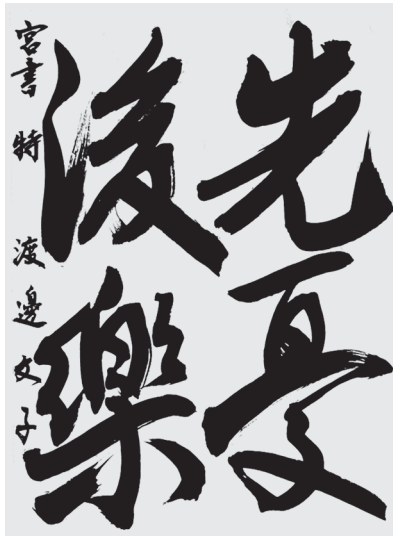 先憂
後樂
宮書 特 渡邊文子